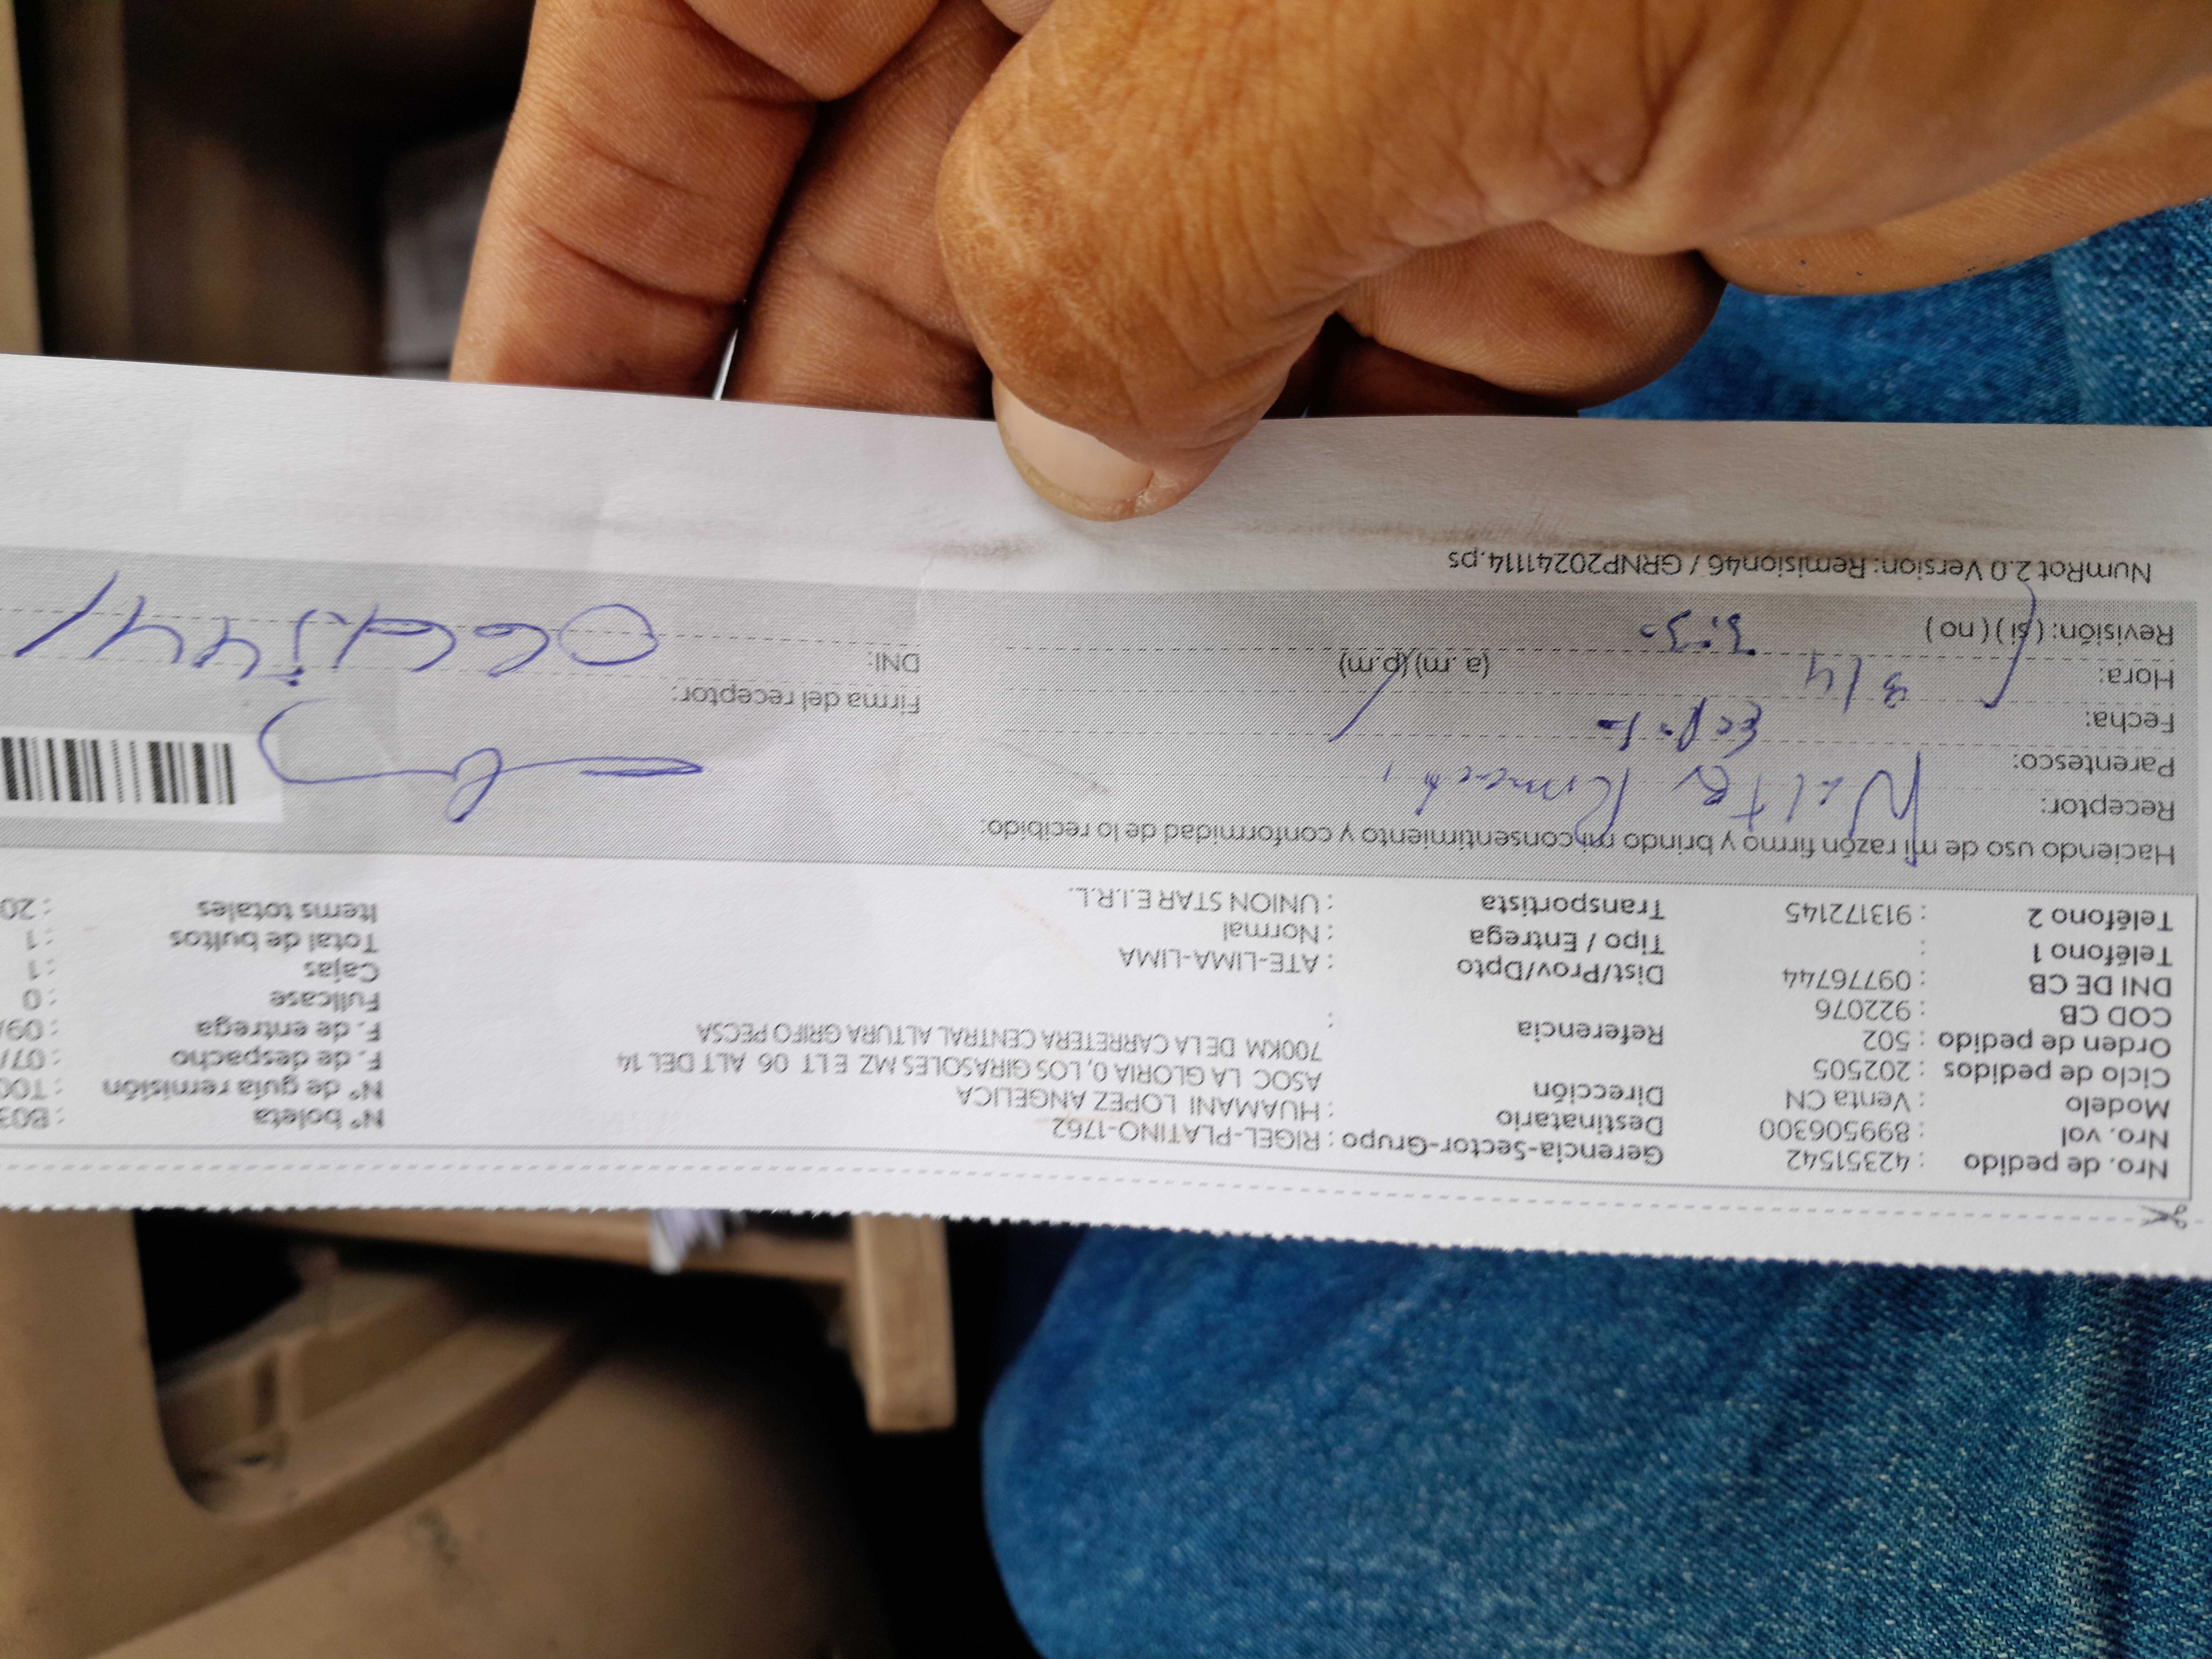 Nro. de pedido : 42351542 Gerencia-Sector-Grupo : RIGEL-PLATINO-1762 Nº boleta : B03
Nro. vol : 899506300 Destinatario : HUAMANI LOPEZ ANGELICA Nº de guía remisión : T00
Modelo : Venta CN Dirección ASOC LA GLORIA 0, LOS GIRASOLES MZ E LT 06 ALT DEL 14 F. de despacho : 07/
Ciclo de pedidos : 202505 700KM DE LA CARRETERA CENTRAL ALTURA GRIFO PECSA F. de entrega : 09/
Orden de pedido : 502 Referencia : Fullcase : 0
COD CB : 922076 Cajas : 1
DNI DE CB : 09776744 Dist/Prov/Dpto : ATE-LIMA-LIMA Total de bultos : 1
Teléfono 1 : Tipo / Entrega : Normal Items totales : 20
Teléfono 2 : 913172145 Transportista : UNION STAR E.I.R.L.
Haciendo uso de mi razón firmo y brindo mi consentimiento y conformidad de lo recibido:
Receptor: Walter
Parentesco:
Fecha: 3/4 Firma del receptor:
Hora: 3:30 (a.m) (p.m) DNI:
Revisión: (si) (no)
NumRot 2.0 Version: Remision46 / GRNP20241114.ps